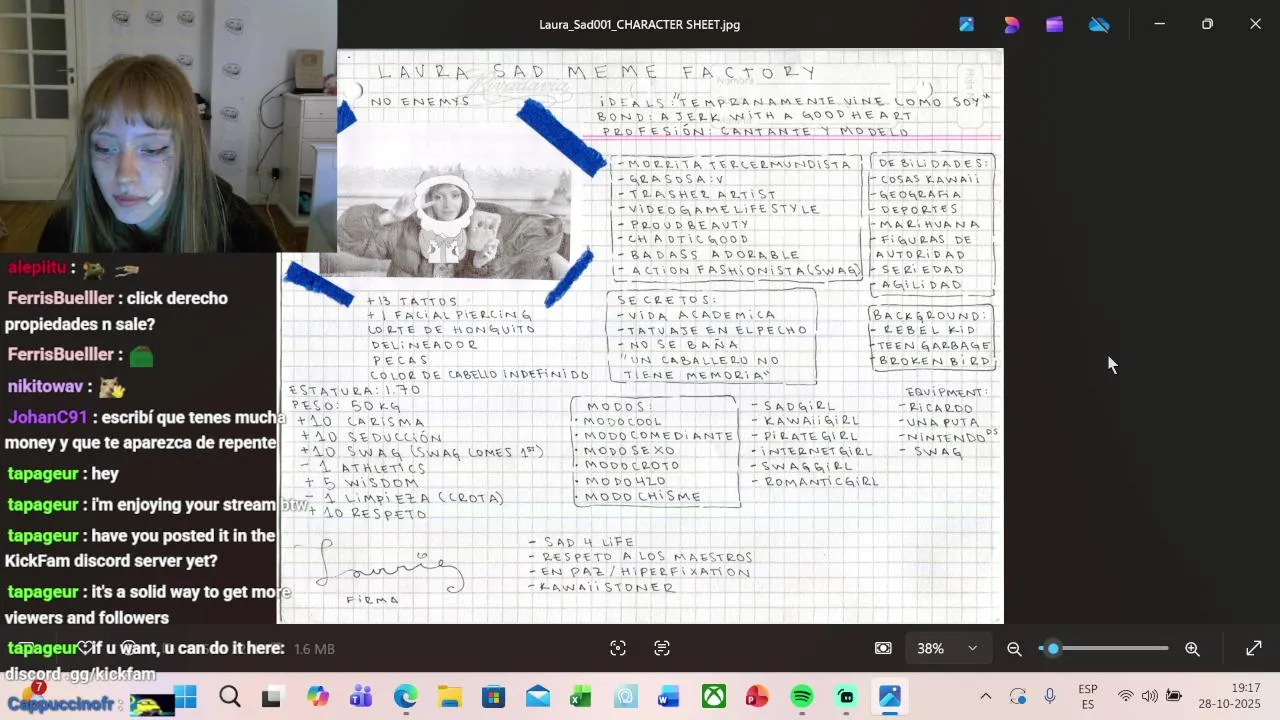 Laura_Sad001_CHARACTER SHEET.jpg
LAURA SAD MEME FACTORY
Rivadavia
Nombre
NO ENEMYS
IDEALS: "TEMPRANAMENTE VINE COMO SOY"
BOND: A JERK WITH A GOOD HEART
PROFESIÓN: CANTANTE Y MODELO
- MORRITA TERCERMUNDISTA
- GRASOSA:V
- TRASHER ARTIST
- VIDEOGAMELIFESTYLE
- PROUDBEAUTY
- CHAOTICGOOD
- BADASS ADORABLE
- ACTION FASHIONISTA(SWAG)
DEBILIDADES:
- COSAS KAWAII
- GEOGRAFIA
- DEPORTES
- MARIHUANA
- FIGURAS DE
AUTORIDAD
- SERIEDAD
- AGILIDAD
+13 TATTOS
+1 FACIAL PIERCING
CORTE DE HONGUITO
DELINEADOR
PECAS
COLOR DE CABELLO INDEFINIDO
SECRETOS:
- VIDA ACADEMICA
- TATUAJE EN EL PECHO
- NO SE BAÑA
"UN CABALLERO NO
TIENE MEMORIA"
BACKGROUND:
- REBEL KID
- TEEN GARBAGE
- BROKEN BIRD
ESTATURA: 1.70
PESO: 50 KG
+10 CARISMA
+10 SEDUCCIÓN
+10 SWAG (SWAG COMES 1ST)
- 1 ATHLETICS
+ 5 WISDOM
- 1 LIMPIEZA (CROTA)
+ 10 RESPETO
MODOS:
· MODOCOOL
· MODOCOMEDIANTE
· MODOSEXO
· MODOCROTO
· MODO420
· MODOCHISME
- SADGIRL
- KAWAIIGIRL
- PIRATEGIRL
- INTERNETGIRL
- SWAGGIRL
- ROMANTICGIRL
EQUIPMENT:
- RICARDO
- UNA PUTA
- NINTENDO DS
- SWAG
- SAD 4 LIFE
- RESPETO A LOS MAESTROS
- EN PAZ/HIPERFIXATION
- KAWAIISTONER
FIRMA
alepiitu :
FerrisBuelller : click derecho
propiedades n sale?
FerrisBuelller :
nikitowav :
JohanC91 : escribí que tenes mucha
money y que te aparezca de repente
tapageur : hey
tapageur : i'm enjoying your stream btw
tapageur : have you posted it in the
KickFam discord server yet?
tapageur : it's a solid way to get more
viewers and followers
tapageur : if u want, u can do it here:
discord .gg/kickfam
Cappuccinofr :
1.6 MB
38%
7
ESP
ES
19:17
28-10-2025